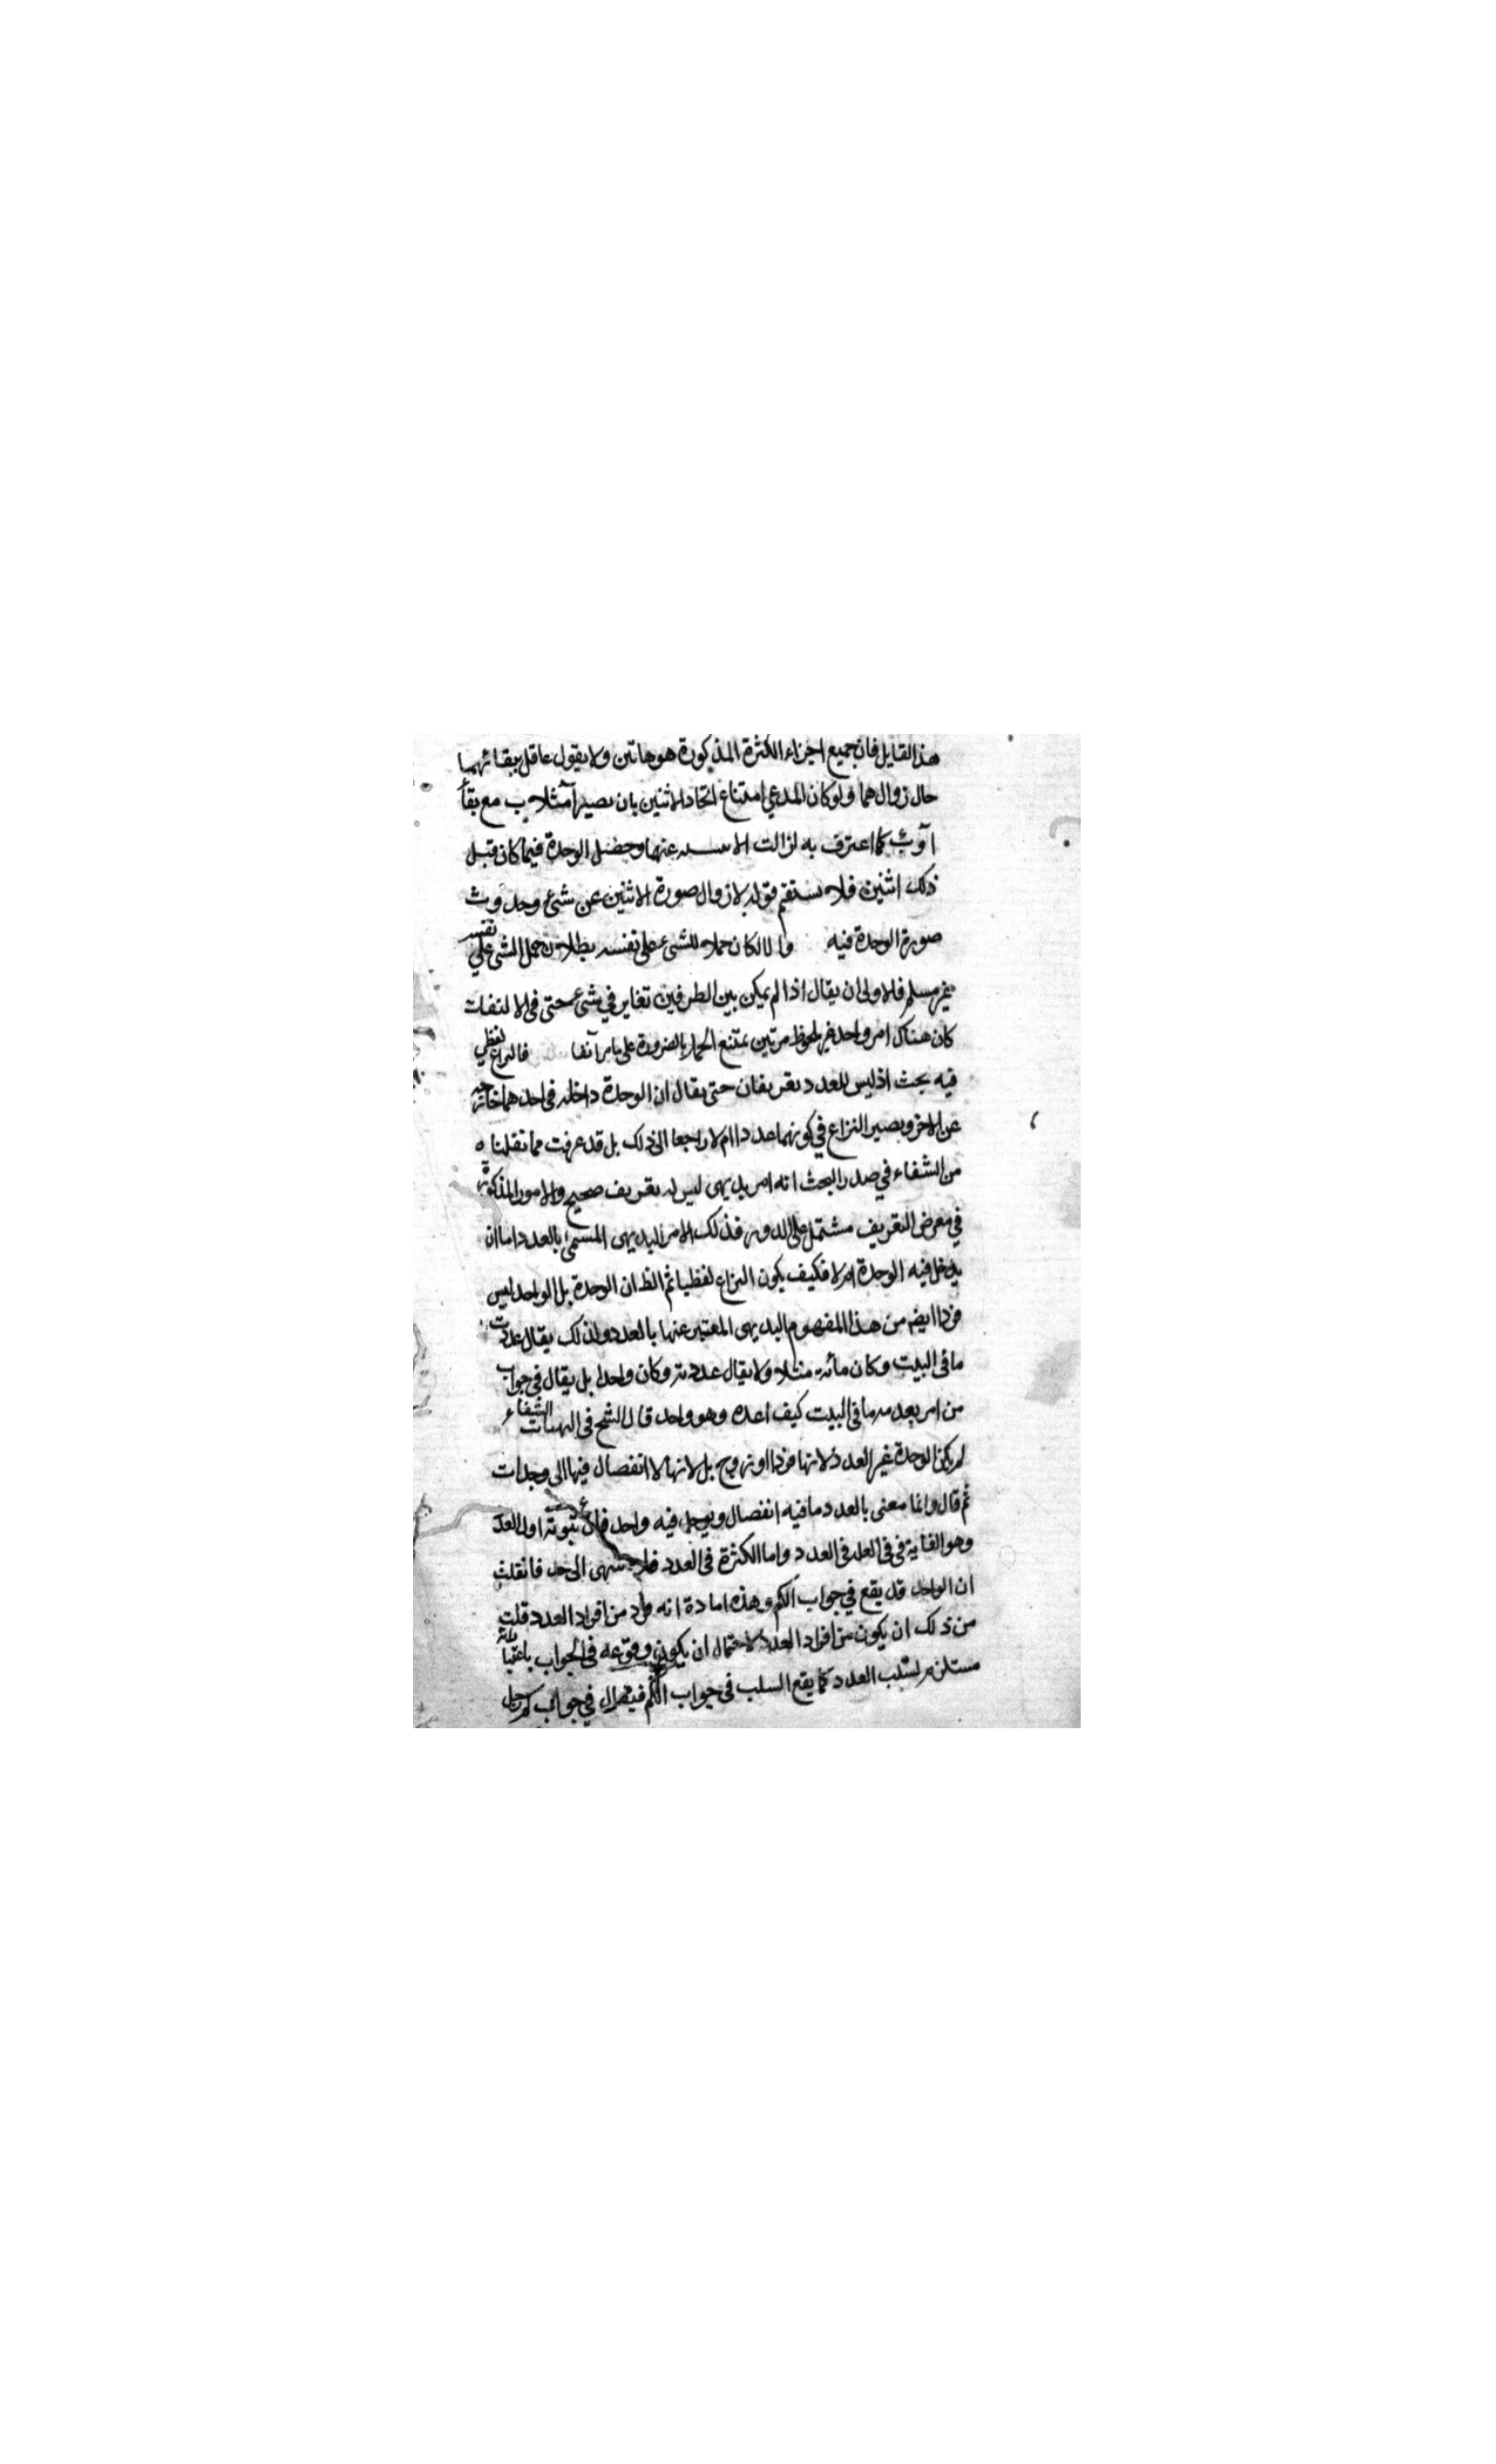 هذا القايل فان جميع اجزاء الكثرة المذكورة هوهاتين ولا يقول عاقل ببقائهما
حال زوالهما ولو كان المدعي امتناع اتحاد الاثنين بان يصير آ مثلا ب مع بقأ
آ و ب كما اعترف به لزالت عنهما وحصل الوحدة فيما كان قبل
ذلك اثنين فلا يستقيم قوله لا زوال صورة الاثنين عن شئ وحدوث
صورة الوحدة فيه والا لكان حملا للشئ على نفسه بطلان حمل الشئ علي نفسه
غير مسلم فالاولى ان يقال اذا لم يكن بين الطرفين تغاير في شئ حتى في الالتفات
كان هناك امر واحد غير ملحوظ مرتين يمتنع الحمل بالضرورة على ما مر آنفا فالنزاع لفظي
فيه بحث اذ ليس للعدد تعريفان حتى يقال ان الوحدة داخله في احدهما خارجة
عن الاخر ويصير النزاع في كونهما عددا ام لا راجعا الى ذلك بل قد عرفت مما نقلناه
من الشفاء في صدر البحث انه امر بديهى ليس له تعريف صحيح والامور المذكورة
في معرض التعريف مشتمل على الدور فذلك الامر البديهى المسمى بالعدد اما ان
يدخل فيه الوحدة ام لا فكيف يكون النزاع لفظيا ثم الظ ان الوحدة بل الواحد ليس
فردا ايضا من هذا المفهوم البديهى المعتبر عنها بالعدد ولذلك يقال عددت
ما فى البيت وكان مائة مثلا ولا يقال عددته وكان واحدا بل يقال في جواب
من امر بعد ما فى البيت كيف اعده وهو واحد قال الشيخ فى الهيات الشفاء
لم يكن الوحدة غير العدد لانها فردا او زوج بل لانها لا انفصال فيها الى وحدات
ثم قال وانما معنى بالعدد ما فيه انفصال ويوجد فيه واحد اول العدد
وهو الغاية في فى العدد واما الكثرة فى العدد فلا ينتهى الى حد فان قلت
ان الواحد قد يقع في جواب الكم وهذه امادة انه فرد من افراد العدد قلت
من ذلك ان يكون من افراد العدد لاحتمال ان يكون وقوعه فى الجواب باعتبار
مستلزم لسلب العدد كما يقع السلب فى جواب الكم فيقال في جواب كم رجل